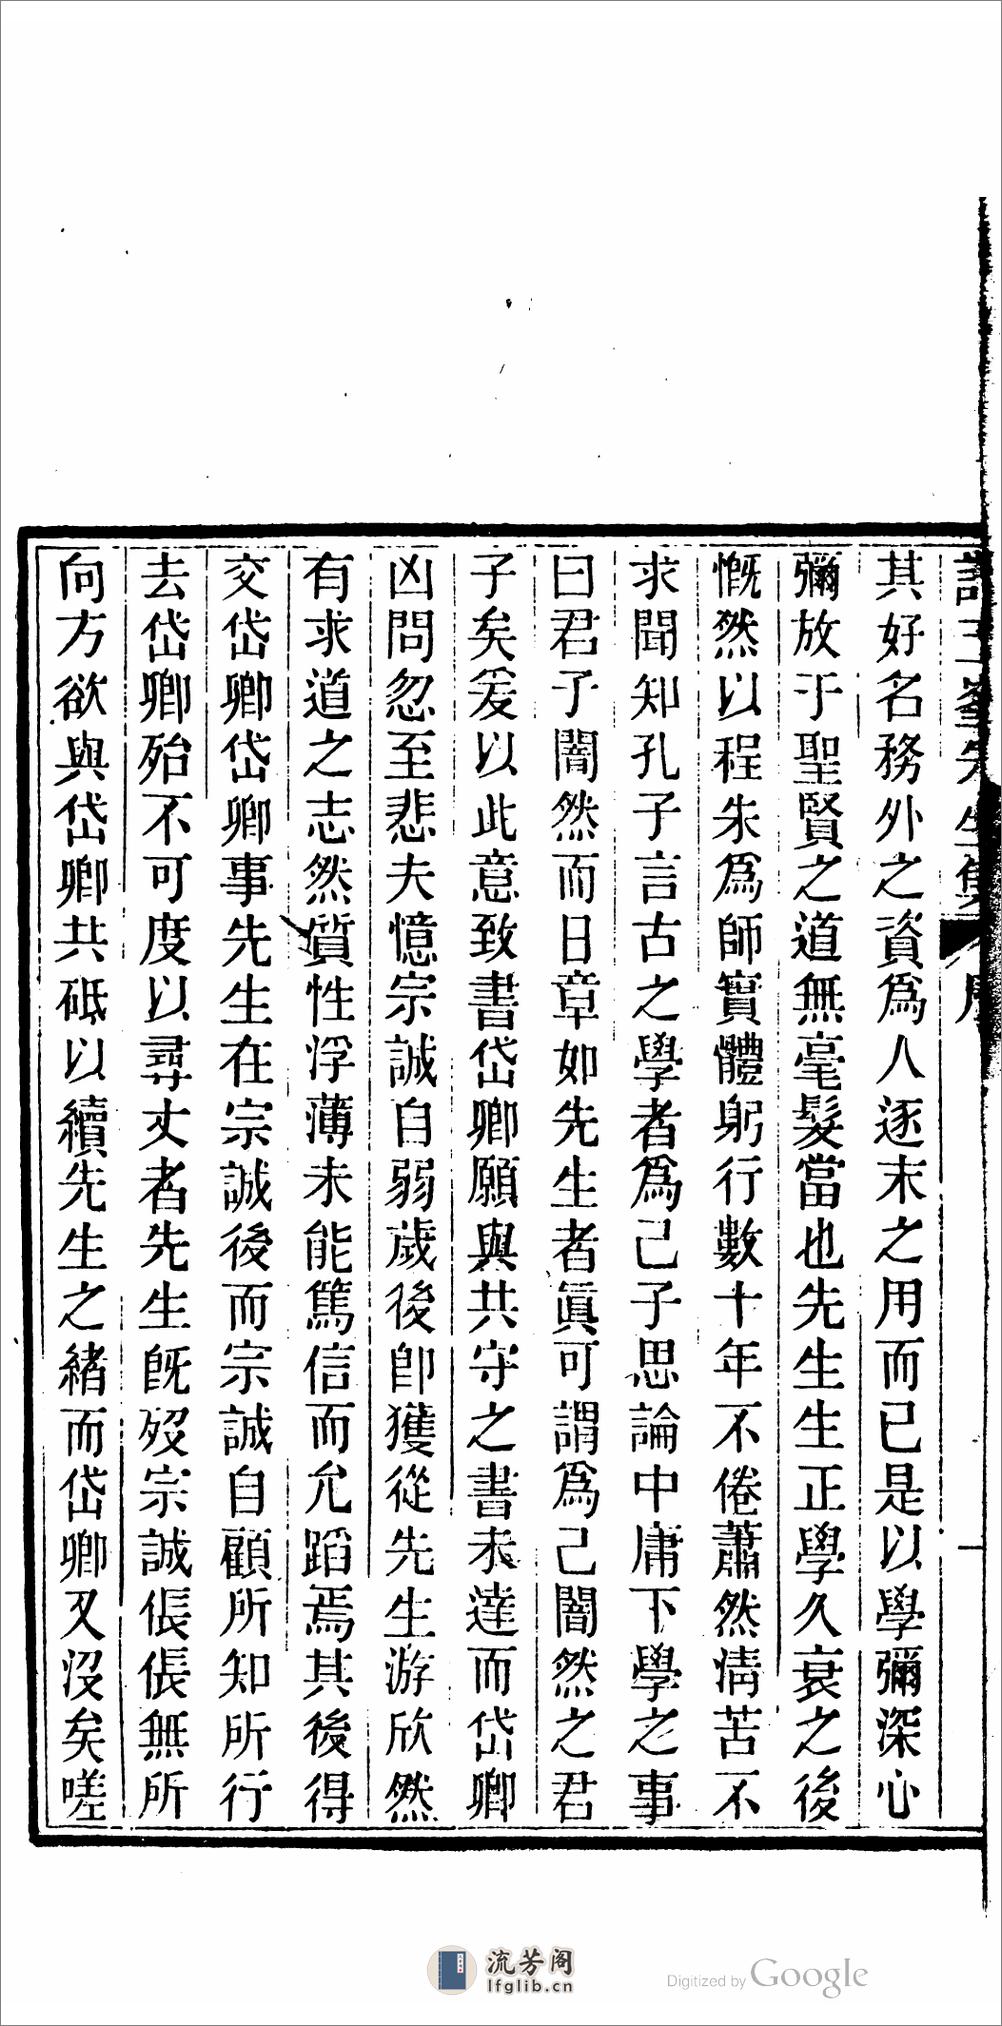 其好名務外之資爲人逐末之用而已是以學彌深心
彌放于聖賢之道無毫髮當也先生生正學久衰之後
慨然以程朱爲師實體躬行數十年不倦蕭然淸苦不
求聞知孔子言古之學者爲己子思論中庸下學之事
曰君子闇然而日章如先生者眞可謂爲己闇然之君
子矣爰以此意致書岱卿願與共守之書未達而岱卿
凶問忽至悲夫憶宗誠自弱歲後卽獲從先生游欣然
有求道之志然質性浮薄未能篤信而允蹈焉其後得
交岱卿岱卿事先生在宗誠後而宗誠自顧所知所行
去岱卿殆不可度以尋丈者先生旣歿宗誠倀倀無所
向方欲與岱卿共砥以續先生之緒而岱卿又沒矣嗟
流芳阁
lfglib.cn
Digitized by Google